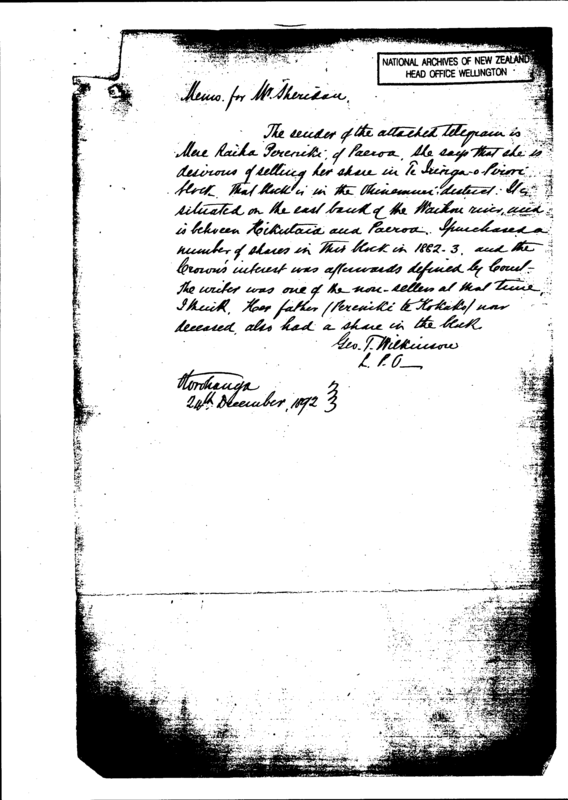 NATIONAL ARCHIVES OF NEW ZEALAND
HEAD OFFICE WELLINGTON
Memo. for Mr Sheridan.
The sender of the attached telegram is
Mere Raiha Pereniki of Paeroa. She says that she is
desirous of selling her share in Te Iringa-o-Pirori
block. That block is in the Ohinemuri district. It is
situated on the east bank of the Waihou river, and
is between Hikutaia and Paeroa. I purchased a
number of shares in this block in 1882-3, and the
Crown's interest was afterwards defined by Court -
The writer was one of the non-sellers at that time,
I think. Her father (Pereniki te Kokako) now
deceased also had a share in the block
Geo. T. Wilkinson
L. P. O
Otorohanga
24th December, 1892